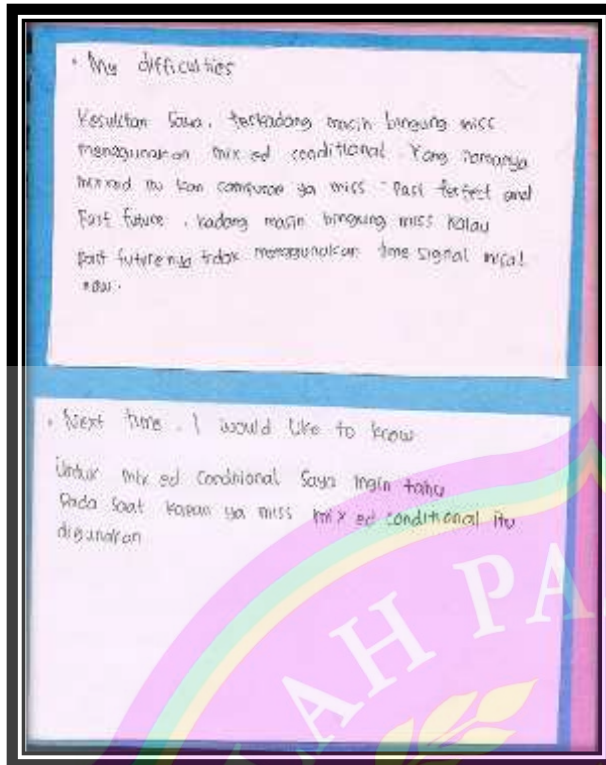 • My difficulties
Kesulitan saya, terkadang masih bingung miss
menggunakan mix ed conditional. Yang namanya
mixed itu kan campuran ya miss Past Perfect and
Past future, kadang masih bingung miss kalau
past future nya tidak menggunakan time signal misal
now.
• Next time, I would like to know
Untuk mix ed Conditional Saya ingin tahu
Pada Saat kapan ya miss mix ed conditional itu
digunakan
AH PA